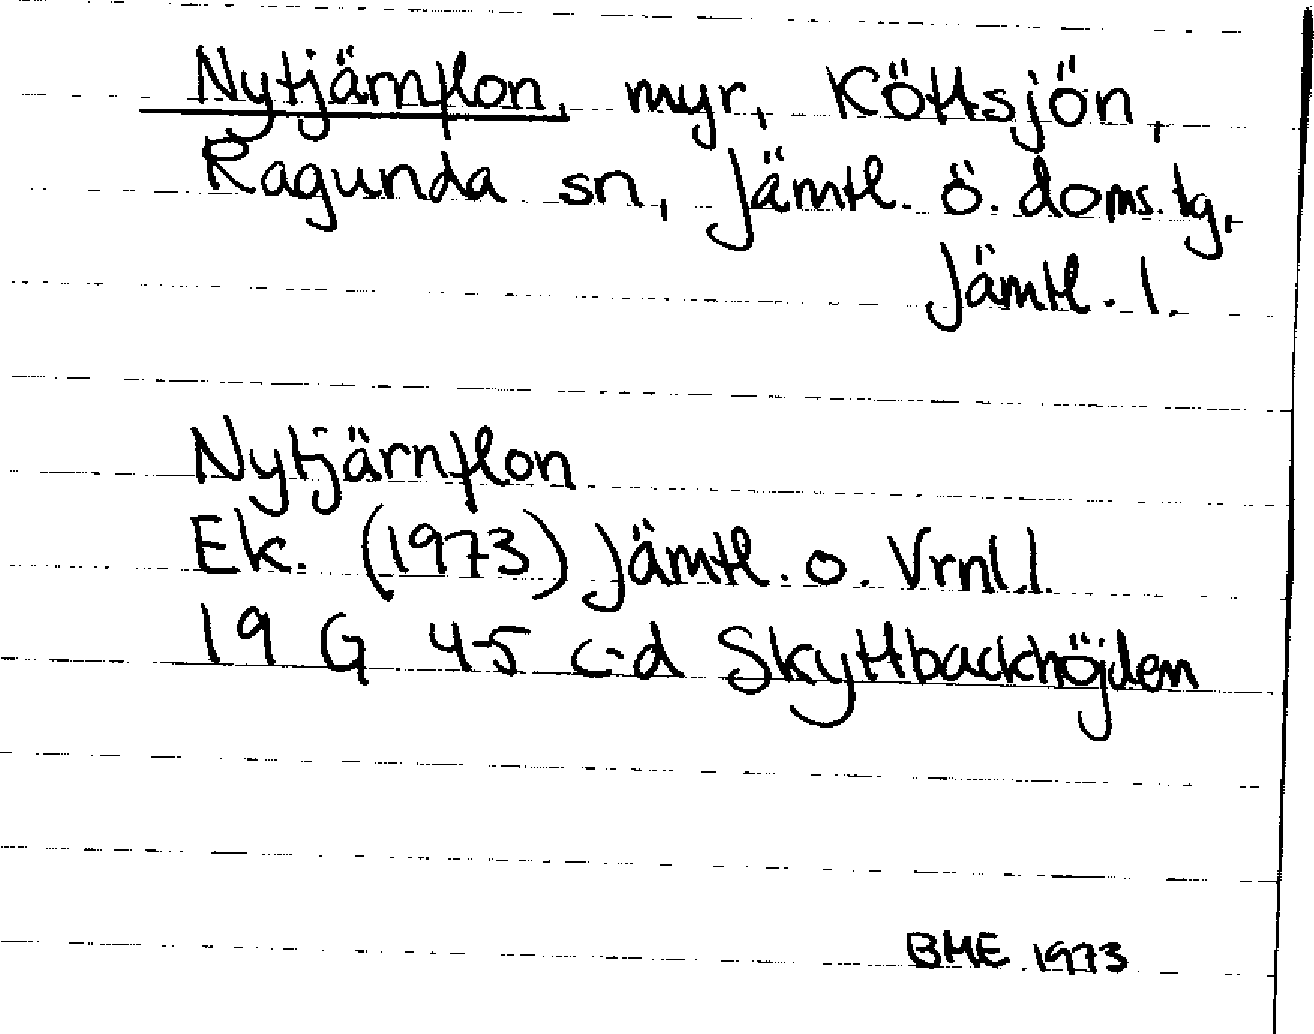 Nytjärnflon, myr, Köttsjön,
Ragunda sn, Jämtl. ö. doms. tg,
Jämtl. l.
Nytjärnflon
Ek. (1973) Jämtl. o. Vrnl.l.
19 G 4-5 c-d Skyttbackhöjden
BME 1973